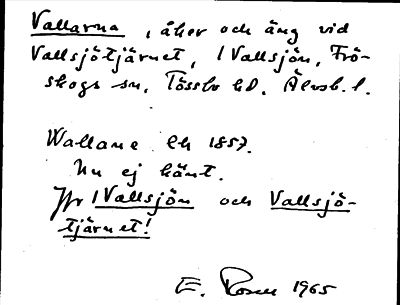 Vallarna, åker och äng vid
Vallsjötjärnet, 1 Vallsjön, Frö-
skogs sn, Tössbo hd, Älvsb. l.
Wallane Ek 1857.
Nu ej känt.
Jfr 1 Vallsjön och Vallsjö-
tjärnet!
E. Rosén 1965